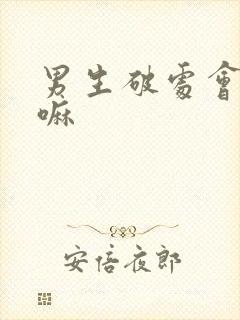 男生破處會
嘛
安倍夜郎